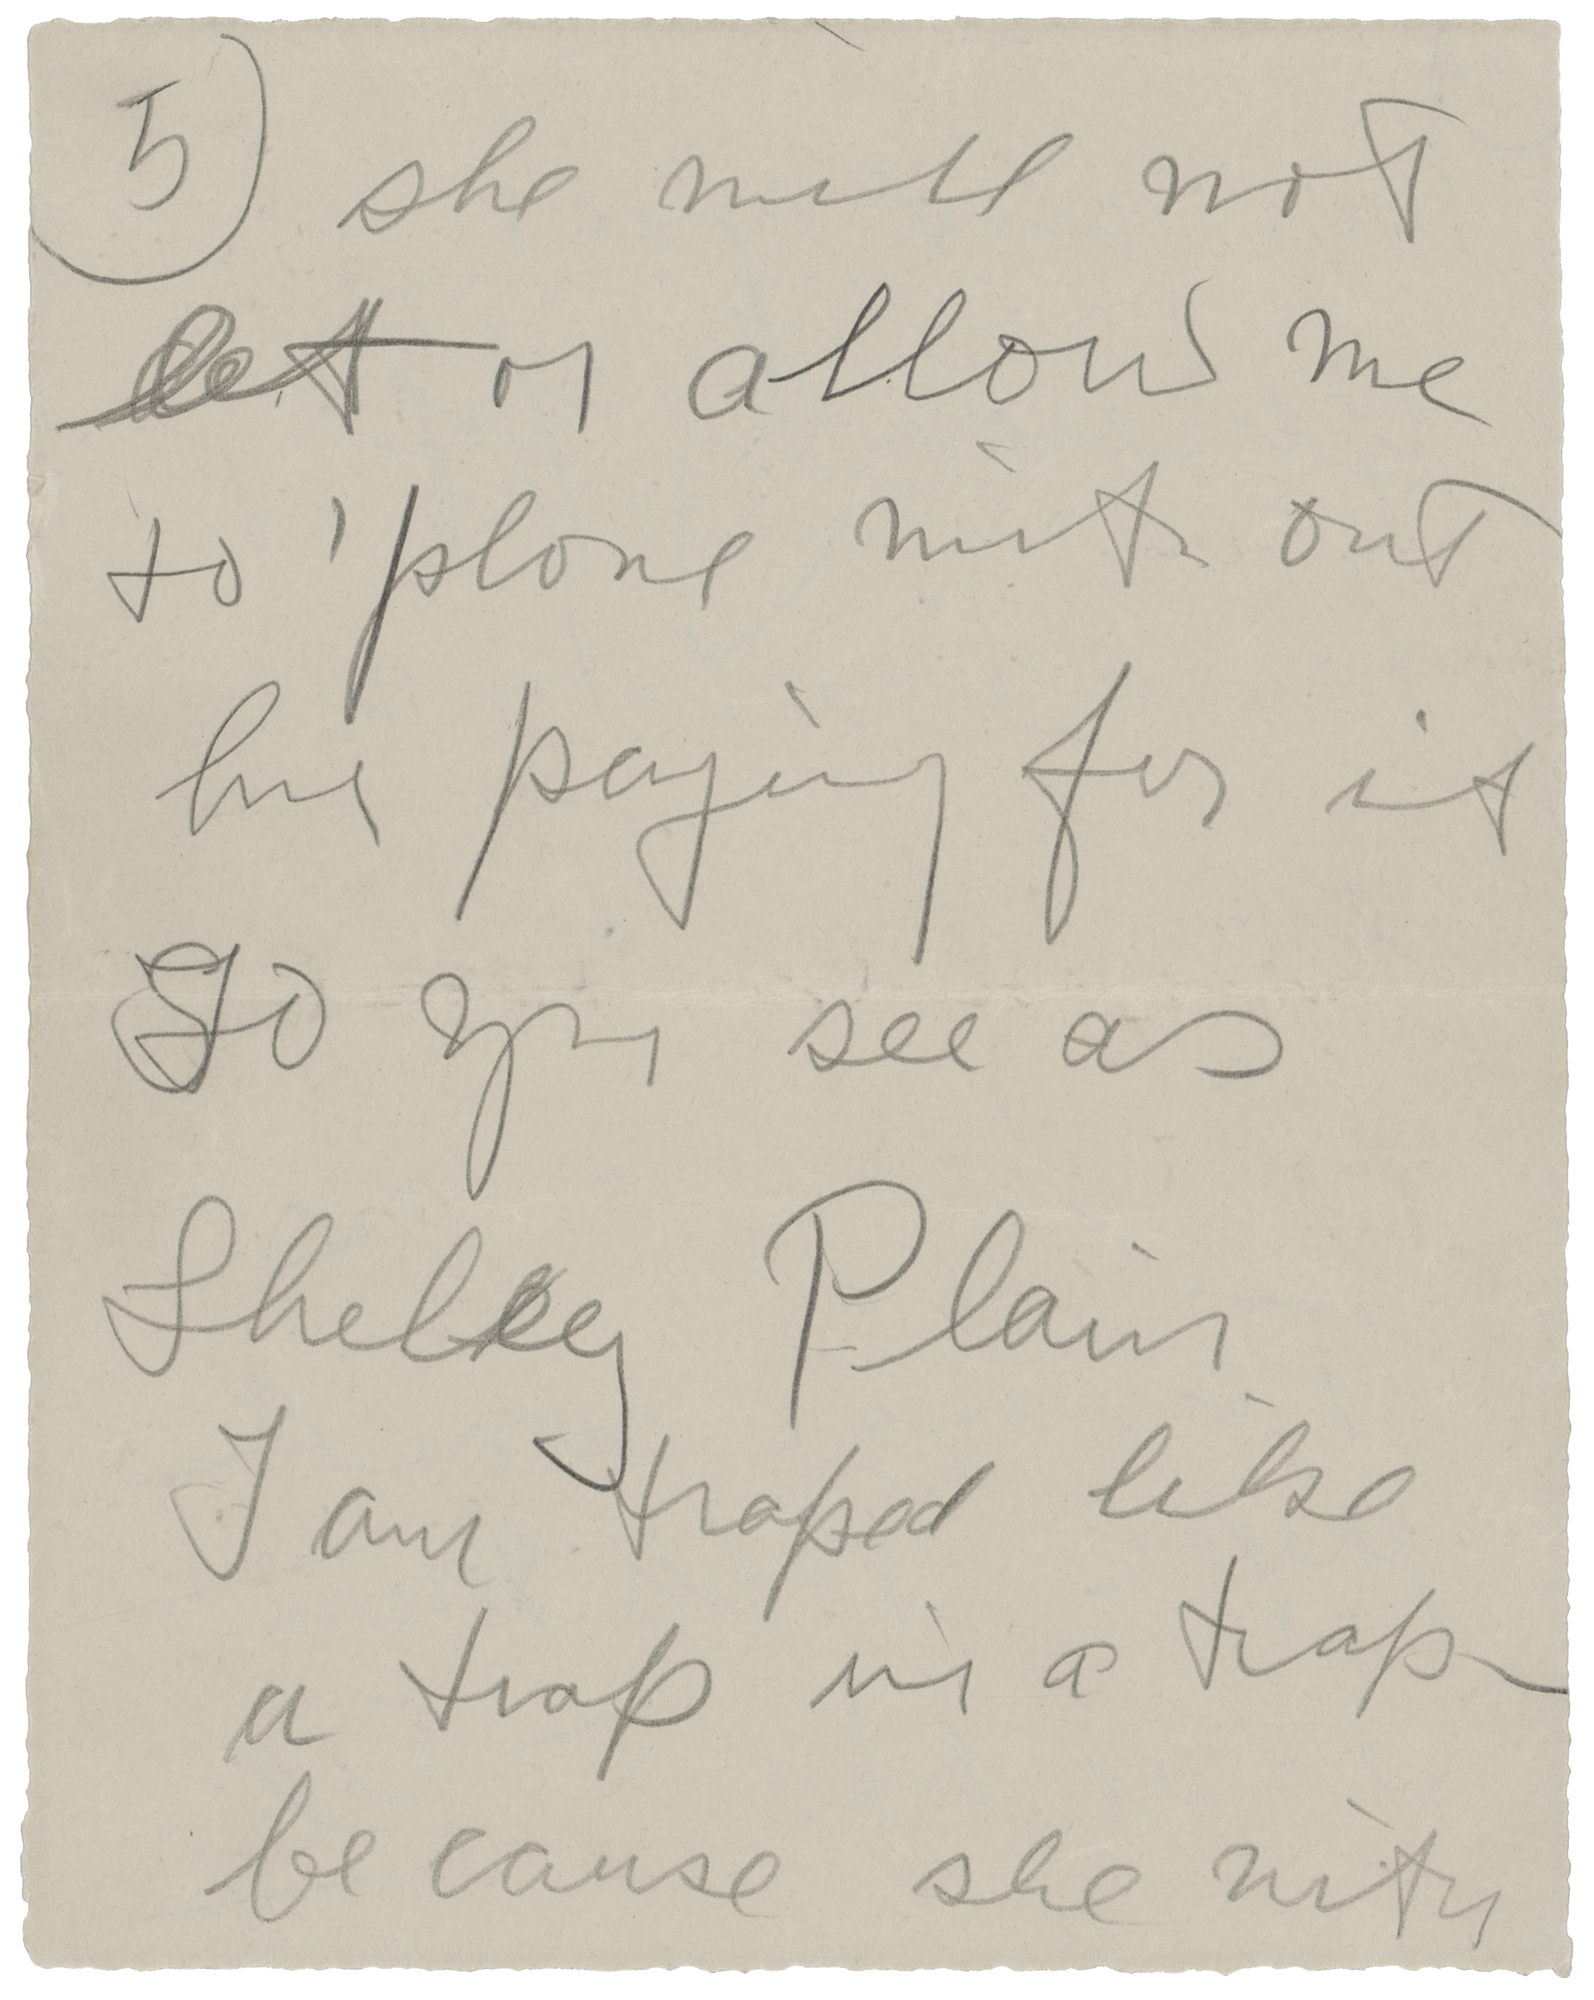 5) she will not
let or allow me
to 'phone with out
her paying for it
So you see as
Shelley Plain
I am traped like
a trap in a trap
be cause she with